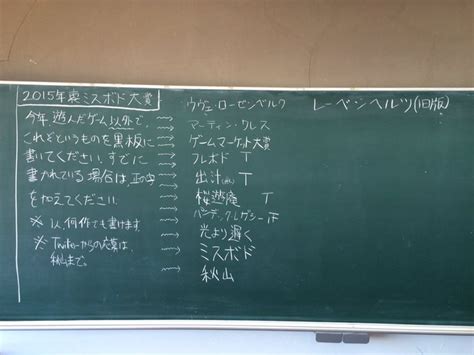 2015年裏ミスボド大賞
今年遊んだゲーム以外で、
これぞというものを黒板に
書いてください。すでに
書かれている場合は、正の字
を加えてください。
※ 以、何作でも書けます
※ Twitterからの応募は、
秋山まで。
ウヴェ・ローゼンベルク
→ マーティン・ワレス
→ ゲームマーケット大賞
→ フレボド T
→ 出汁 T
→ 桜遊庵 T
→ パンデミックレガシー 正
→ 光より遅く
→ ミスボド
→ 秋山
レーベンヘルツ(旧版)